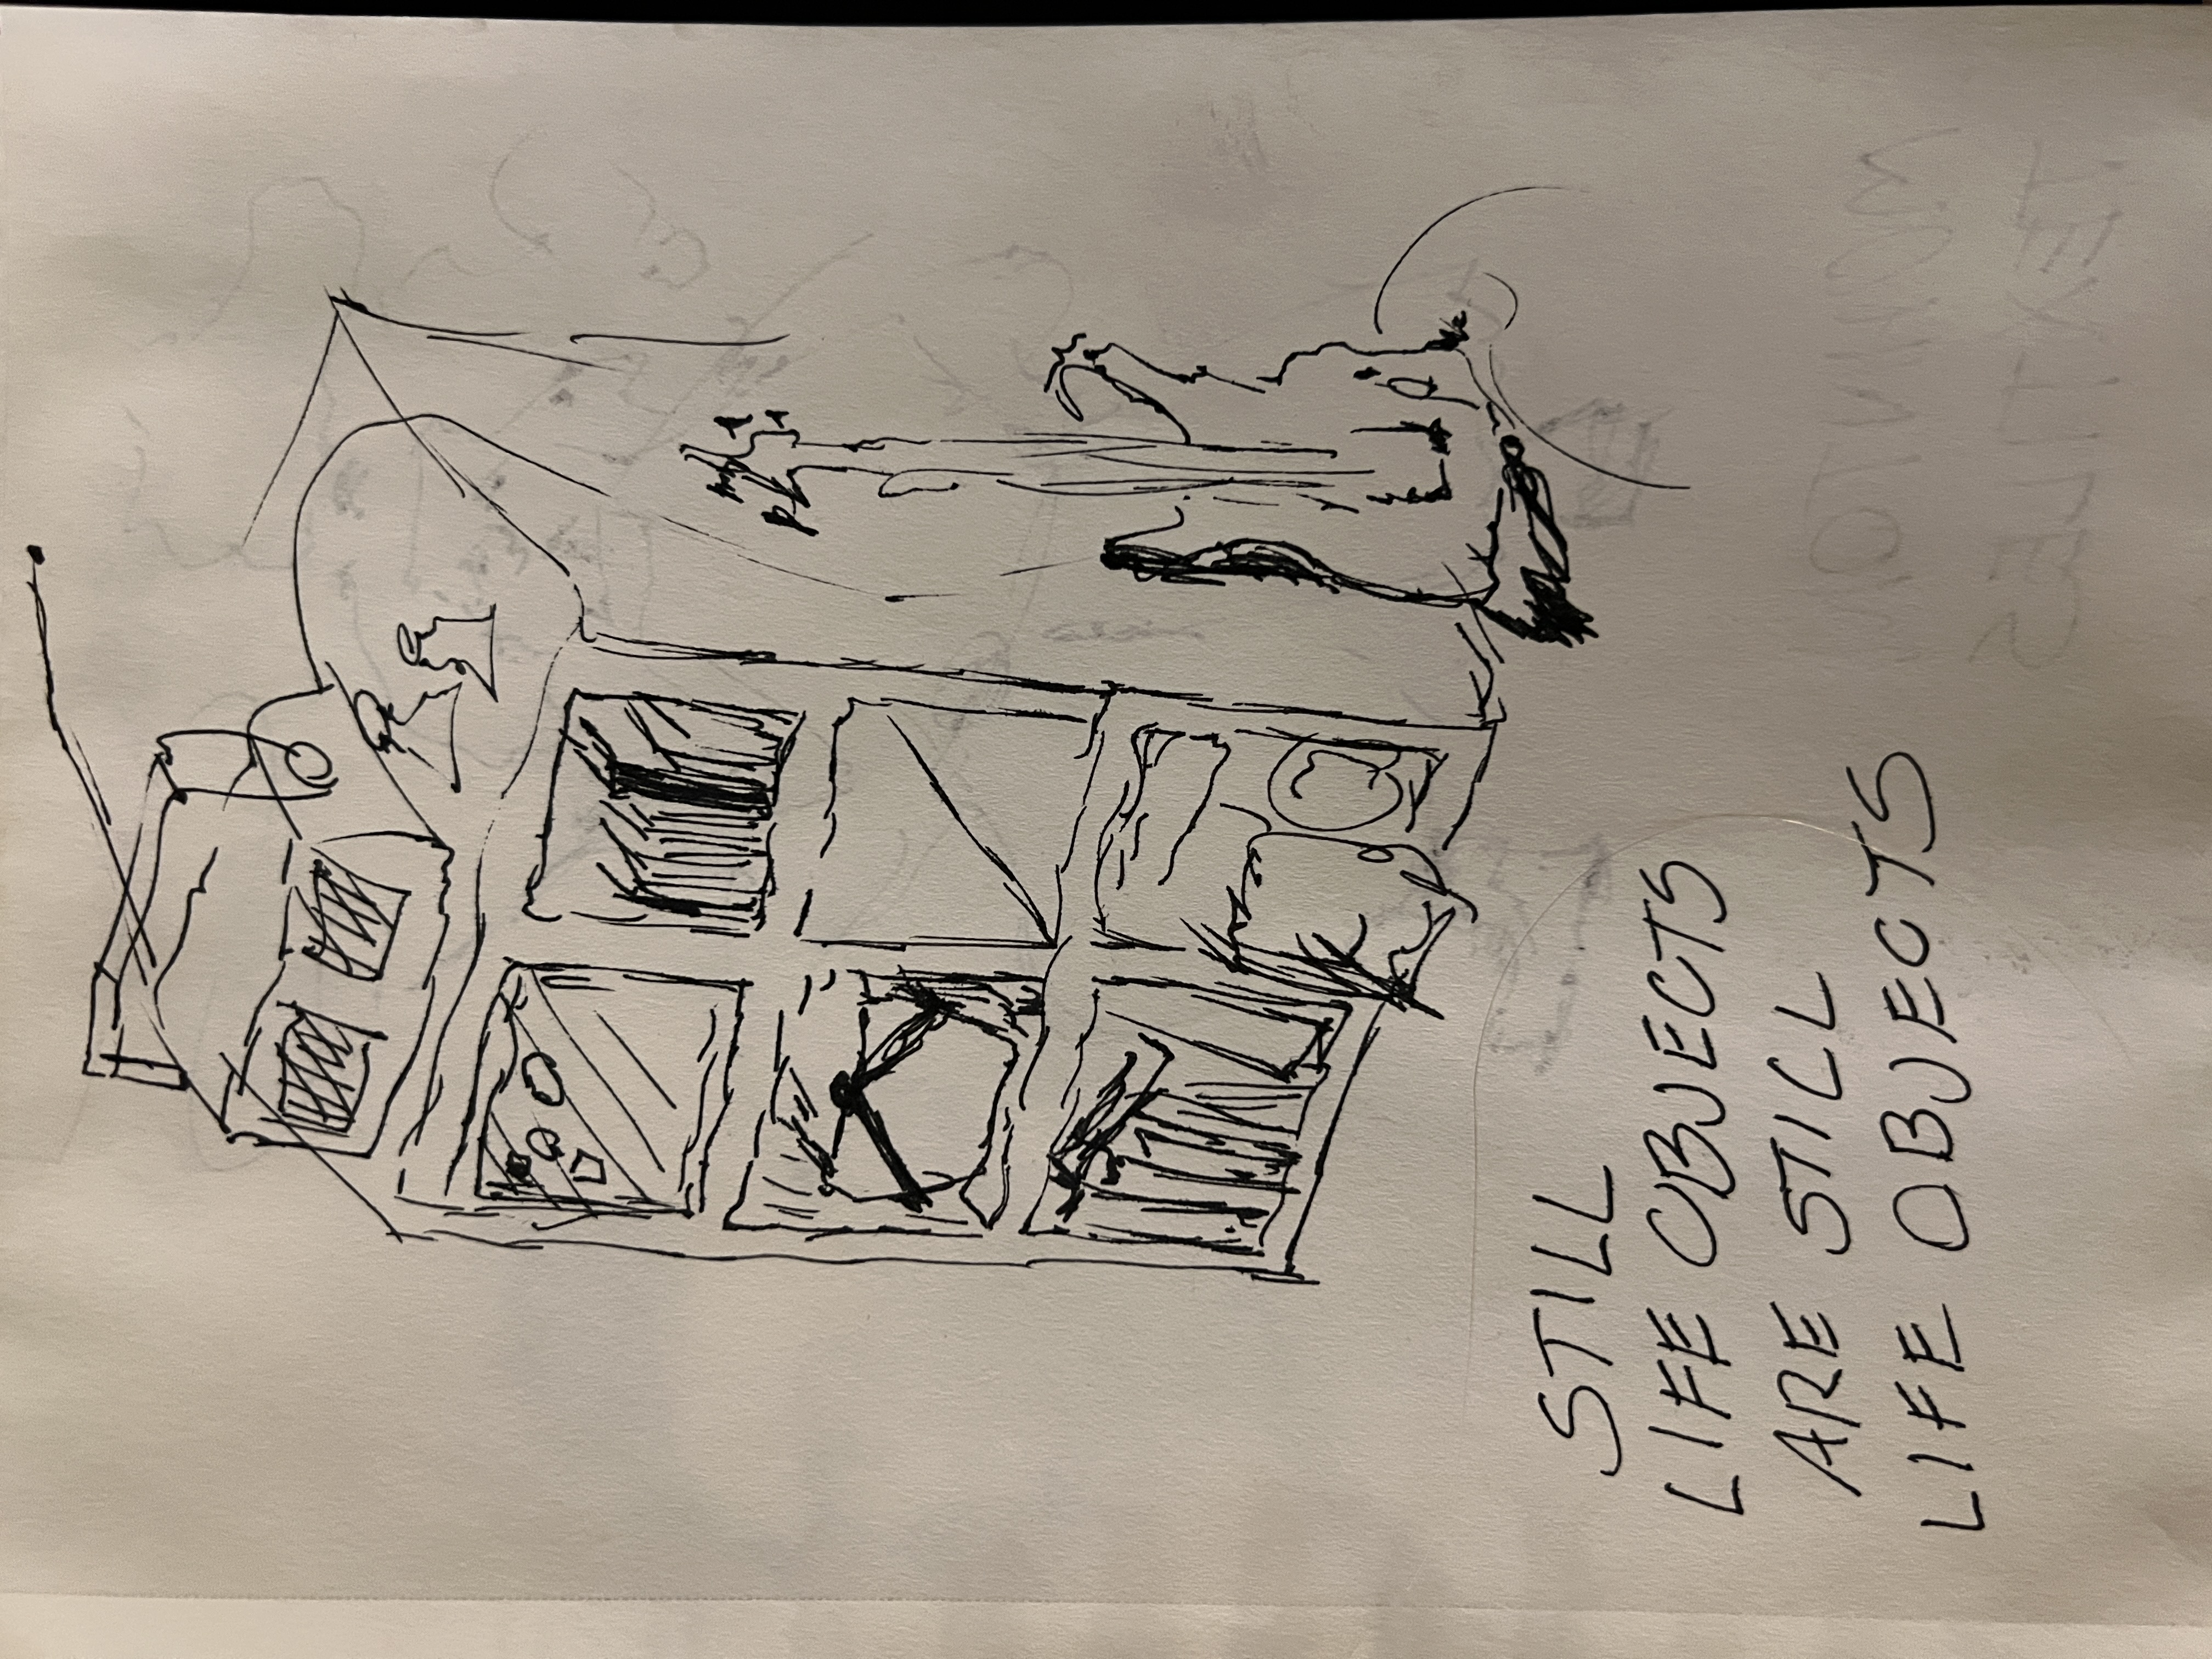 STILL
LIFE OBJECTS
ARE STILL
LIFE OBJECTS